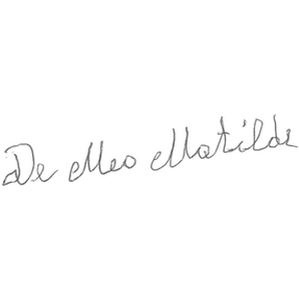 De Meo Matilde